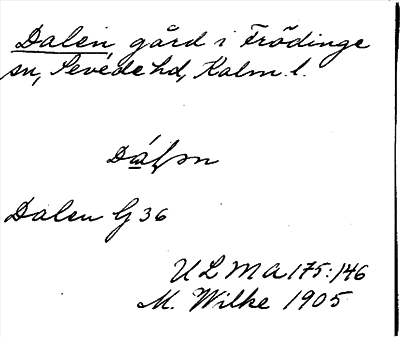 Dalen, gård i Frödinge
sn, Sevede hd, Kalm. l.
Dalen G 36
ULMA 175:146
M. Wilke 1905